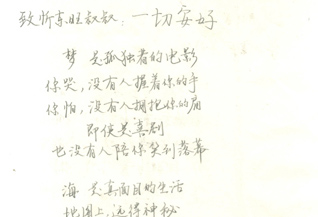 致忻东旺叔叔：一切安好
梦 是孤独者的电影
你哭，没有人握着你的手
你怕，没有人拥抱你的肩
即使是喜剧
也没有人陪你笑到落幕
海 是真面目的生活
地图上，远得神秘